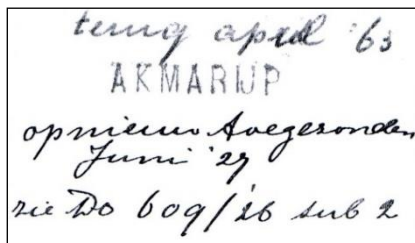 terug april '63
AKMARIJP
opnieuw toegezonden
Juni '27
zie Do 609/26 sub 2